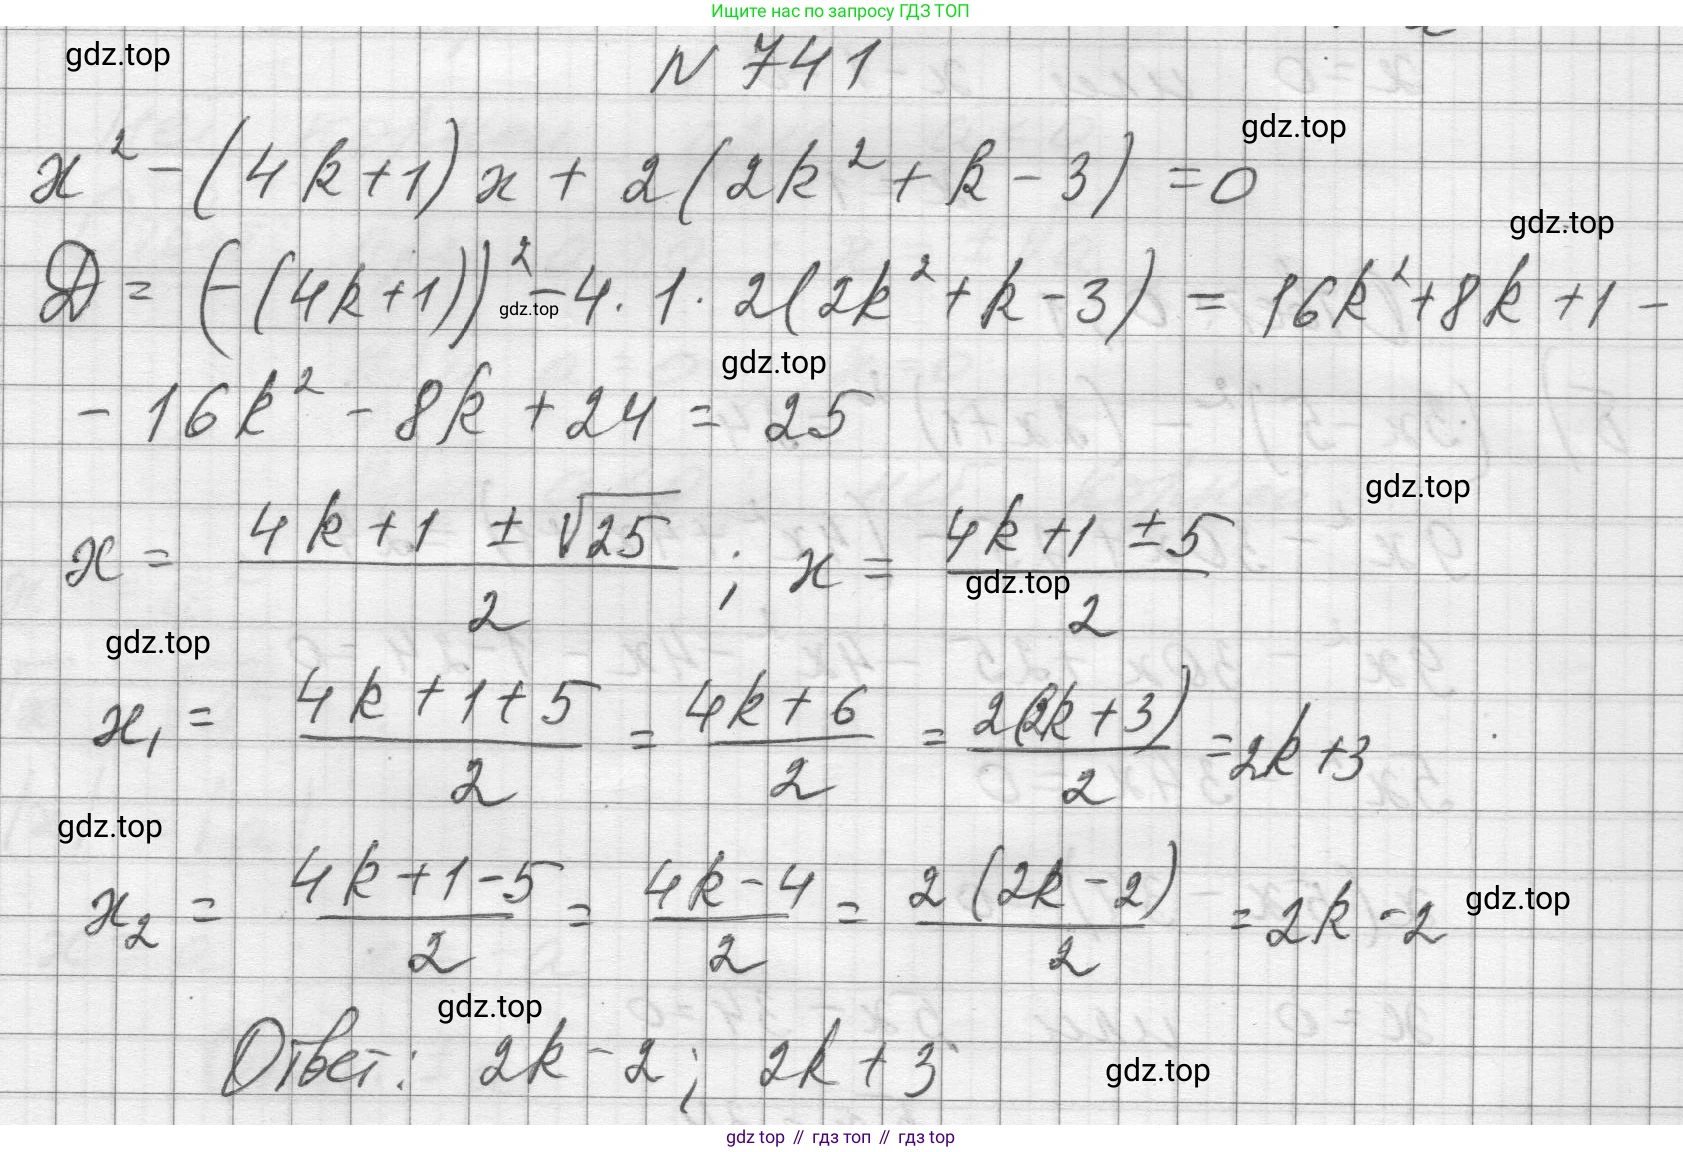 Ищите нас по запросу ГДЗ ТОП
gdz.top
N 741
gdz.top
x² - (4k+1)x + 2(2k² + k - 3) = 0
gdz.top
D = (-(4k+1))² - 4 · 1 · 2(2k² + k - 3) = 16k² + 8k + 1 -
gdz.top
gdz.top
- 16k² - 8k + 24 = 25
gdz.top
x = (4k + 1 ± √25)/2 ; x = (4k + 1 ± 5)/2
gdz.top
gdz.top
x₁ = (4k + 1 + 5)/2 = (4k + 6)/2 = 2(2k + 3)/2 = 2k + 3
gdz.top
x₂ = (4k + 1 - 5)/2 = (4k - 4)/2 = 2(2k - 2)/2 = 2k - 2
gdz.top
gdz.top
Ответ: 2k - 2; 2k + 3
gdz.top
gdz top // гдз топ // gdz top